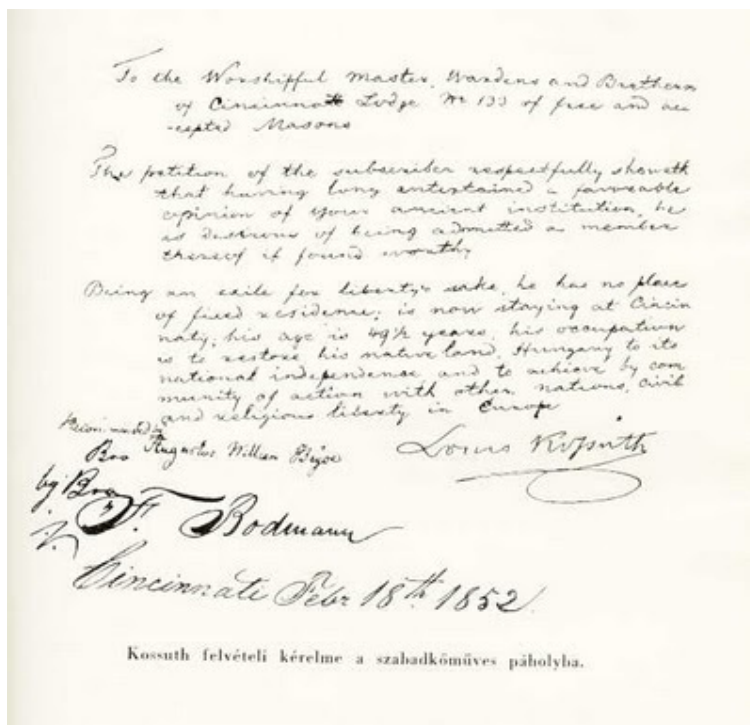 To the Worshipful Master, Wardens and Brethern
of Cincinnati Lodge No 133 of free and ac
-cepted Masons
The petition of the subscriber respectfully showeth
that having long entertained a favorable
opinion of your ancient institution, he
is desirous of being admitted a member
thereof if found worthy
Being an exile for liberty's sake, he has no place
of fixed residence; is now staying at Cincin
naty; his age is 49½ years, his occupation
is to restore his native land, Hungary to its
national independence and to achieve by com
munity of action with other nations, civil
and religious liberty in Europe
Louis Kossuth
Recommended by
Bro Augustus William
by Bro
F. Bodmann
Cincinnati Febr 18th 1852.
Kossuth felvételi kérelme a szabadkőműves páholyba.